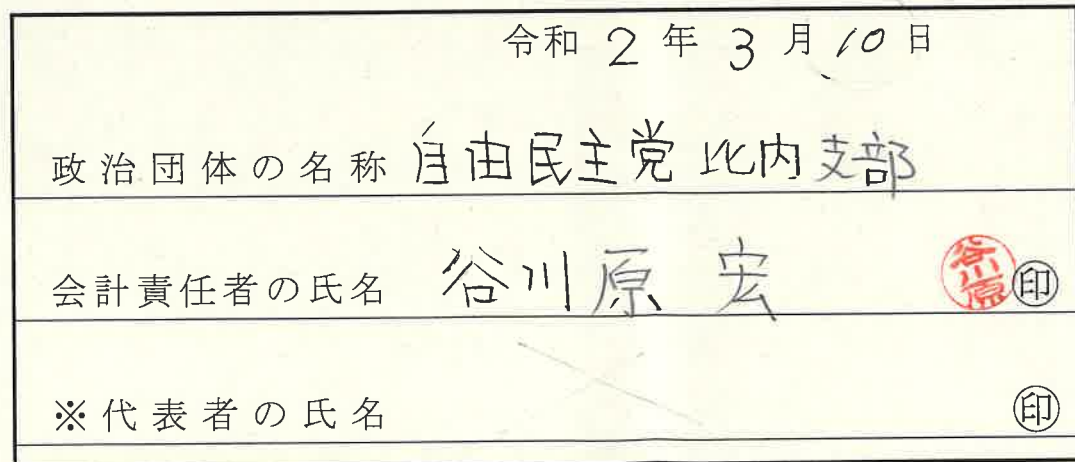 令和 2 年 3 月 10 日
政治団体の名称 自由民主党 比内支部
会計責任者の氏名 谷川原 宏 谷川原 ㊞
※代表者の氏名 ㊞